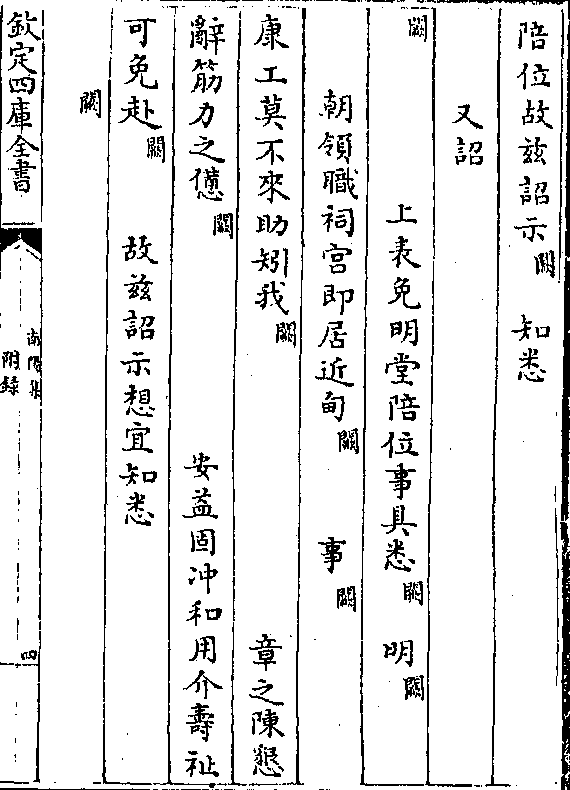 陪位故兹詔示闕知悉
又詔
闕上表免明堂陪位事具悉闕明闕
朝領職祠宫即居近甸闕事闕
康工莫不來助矧我闕章之陳懇
辭筋力之憊闕安益固沖和用介壽祉
可免赴闕故兹詔示想宜知悉
闕
欽定四庫全書
南陽集
附錄
四